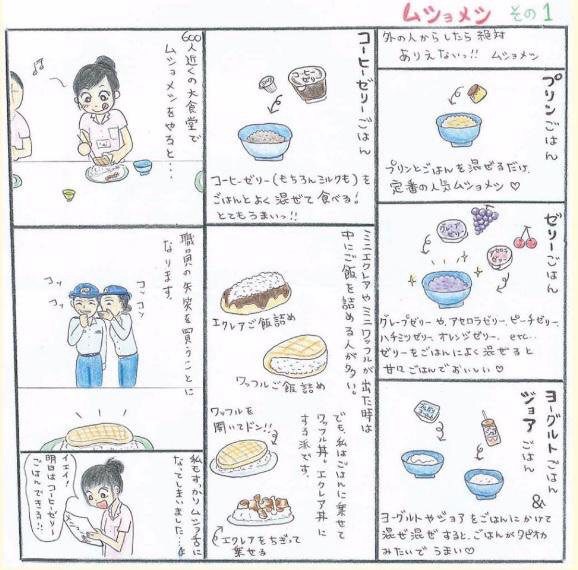 ムショメシ その1
外の人からしたら絶対
ありえないっ!! ムショメシ
プリンごはん
プリンとごはんを混ぜるだけ
定番の人気ムショメシ♡
ゼリーごはん
グレープゼリー
グレープゼリーや、アセロラゼリー、ピーチゼリー、
ハチミツゼリー、オレンジゼリー、 etc...
ゼリーをごはんによく混ぜると
甘々ごはんでおいしい♡
ヨーグルトごはん
&
ジョアごはん
ヨーグルトやジョアをごはんにかけて
混ぜ混ぜすると、ごはんがタピオカ
みたいでうまい♡
コーヒーゼリーごはん
コーヒーゼリー
コーヒーゼリー(もちろんミルクも)を
ごはんとよく混ぜて食べる。
とてもうまいっ!!
ミニエクレアやミニワッフルが出た時は
中にご飯を詰める人が多い。
エクレアご飯詰め
ワッフルご飯詰め
でも、私はごはんに乗せて
ワッフル丼。エクレア丼に
する派です。
ワッフルを
開いてドン!!
エクレアをちぎって
乗せる
600人近くの大食堂で
ムショメシをやると…
職員の失笑を買うことに
なります。
コッ
コソ
コソ
私もすっかりムショ舌に
なってしまいました…
イエイ!
明日はコーヒーゼリー
ごはんできる!!